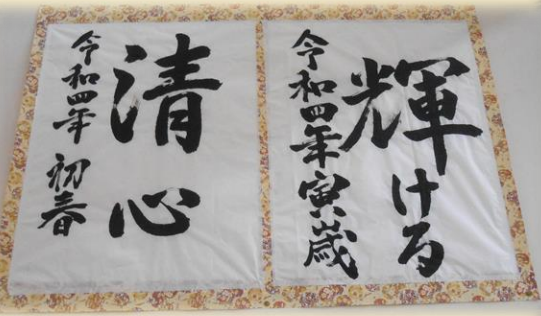 輝ける
令和四年寅歳
清心
令和四年 初春